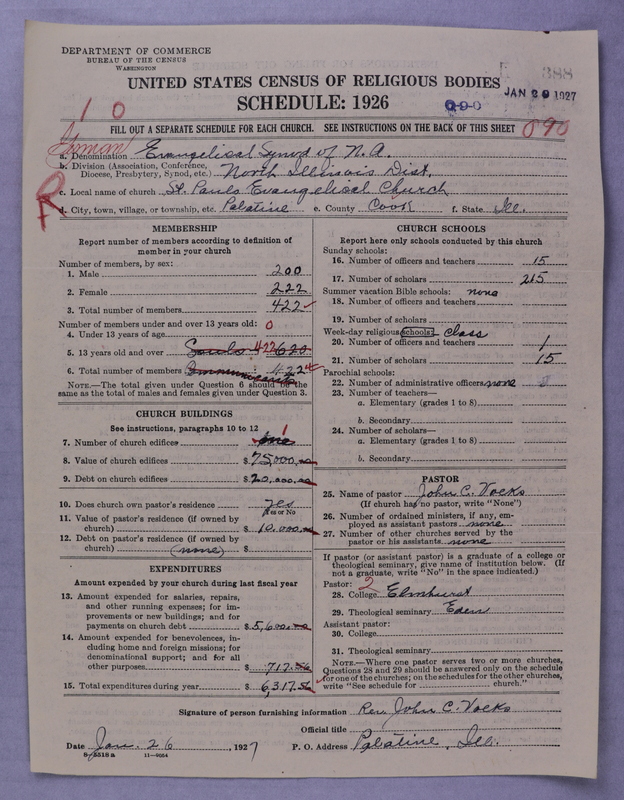 DEPARTMENT OF COMMERCE
BUREAU OF THE CENSUS
WASHINGTON
388
UNITED STATES CENSUS OF RELIGIOUS BODIES
JAN 29 1927
SCHEDULE: 1926
1 0
FILL OUT A SEPARATE SCHEDULE FOR EACH CHURCH. SEE INSTRUCTIONS ON THE BACK OF THIS SHEET
090
German
a. Denomination Evangelical Synod of N.A.
b. Division (Association, Conference, Diocese, Presbytery, Synod, etc.) North Illinois Dist.
c. Local name of church St. Pauls Evangelical Church
d. City, town, village, or township, etc. Palatine e. County Cook f. State Ill.
MEMBERSHIP
Report number of members according to definition of
member in your church
Number of members, by sex:
1. Male 200
2. Female 222
3. Total number of members 422
Number of members under and over 13 years old:
4. Under 13 years of age 0
5. 13 years old and over Souls: 422 620
6. Total number of members Communicants: 422
NOTE.—The total given under Question 6 should be the
same as the total of males and females given under Question 3.
CHURCH BUILDINGS
See instructions, paragraphs 10 to 12
7. Number of church edifices one 1
8. Value of church edifices $75,000.00
9. Debt on church edifices $20,000.00
10. Does church own pastor's residence yes
Yes or No
11. Value of pastor's residence (if owned by
church) $10,000.00
12. Debt on pastor's residence (if owned by
church) (none) $
EXPENDITURES
Amount expended by your church during last fiscal year
13. Amount expended for salaries, repairs,
and other running expenses; for im-
provements or new buildings; and for
payments on church debt $5,600.00
14. Amount expended for benevolences, in-
cluding home and foreign missions; for
denominational support; and for all
other purposes $717.56
15. Total expenditures during year $6,317.56
CHURCH SCHOOLS
Report here only schools conducted by this church
Sunday schools:
16. Number of officers and teachers 15
17. Number of scholars 215
Summer vacation Bible schools: none
18. Number of officers and teachers
19. Number of scholars
Week-day religious schools: class
20. Number of officers and teachers 1
21. Number of scholars 15
Parochial schools:
22. Number of administrative officers none
23. Number of teachers—
a. Elementary (grades 1 to 8)
b. Secondary
24. Number of scholars—
a. Elementary (grades 1 to 8)
b. Secondary
PASTOR
25. Name of pastor John C. Vocks
(If church has no pastor, write "None")
26. Number of ordained ministers, if any, em-
ployed as assistant pastors none
27. Number of other churches served by the
pastor or his assistants none
If pastor (or assistant pastor) is a graduate of a college or
theological seminary, give name of institution below. (If
not a graduate, write "No" in the space indicated.)
Pastor: 2
28. College Elmhurst
29. Theological seminary Eden
Assistant pastor:
30. College
31. Theological seminary
NOTE.—Where one pastor serves two or more churches,
Questions 28 and 29 should be answered only on the schedule
for one of the churches; on the schedules for the other churches,
write "See schedule for church."
Signature of person furnishing information Rev. John C. Vocks
Official title
Date Jan. 26, 1927 P. O. Address Palatine, Ill.
8-5518a 11-9054